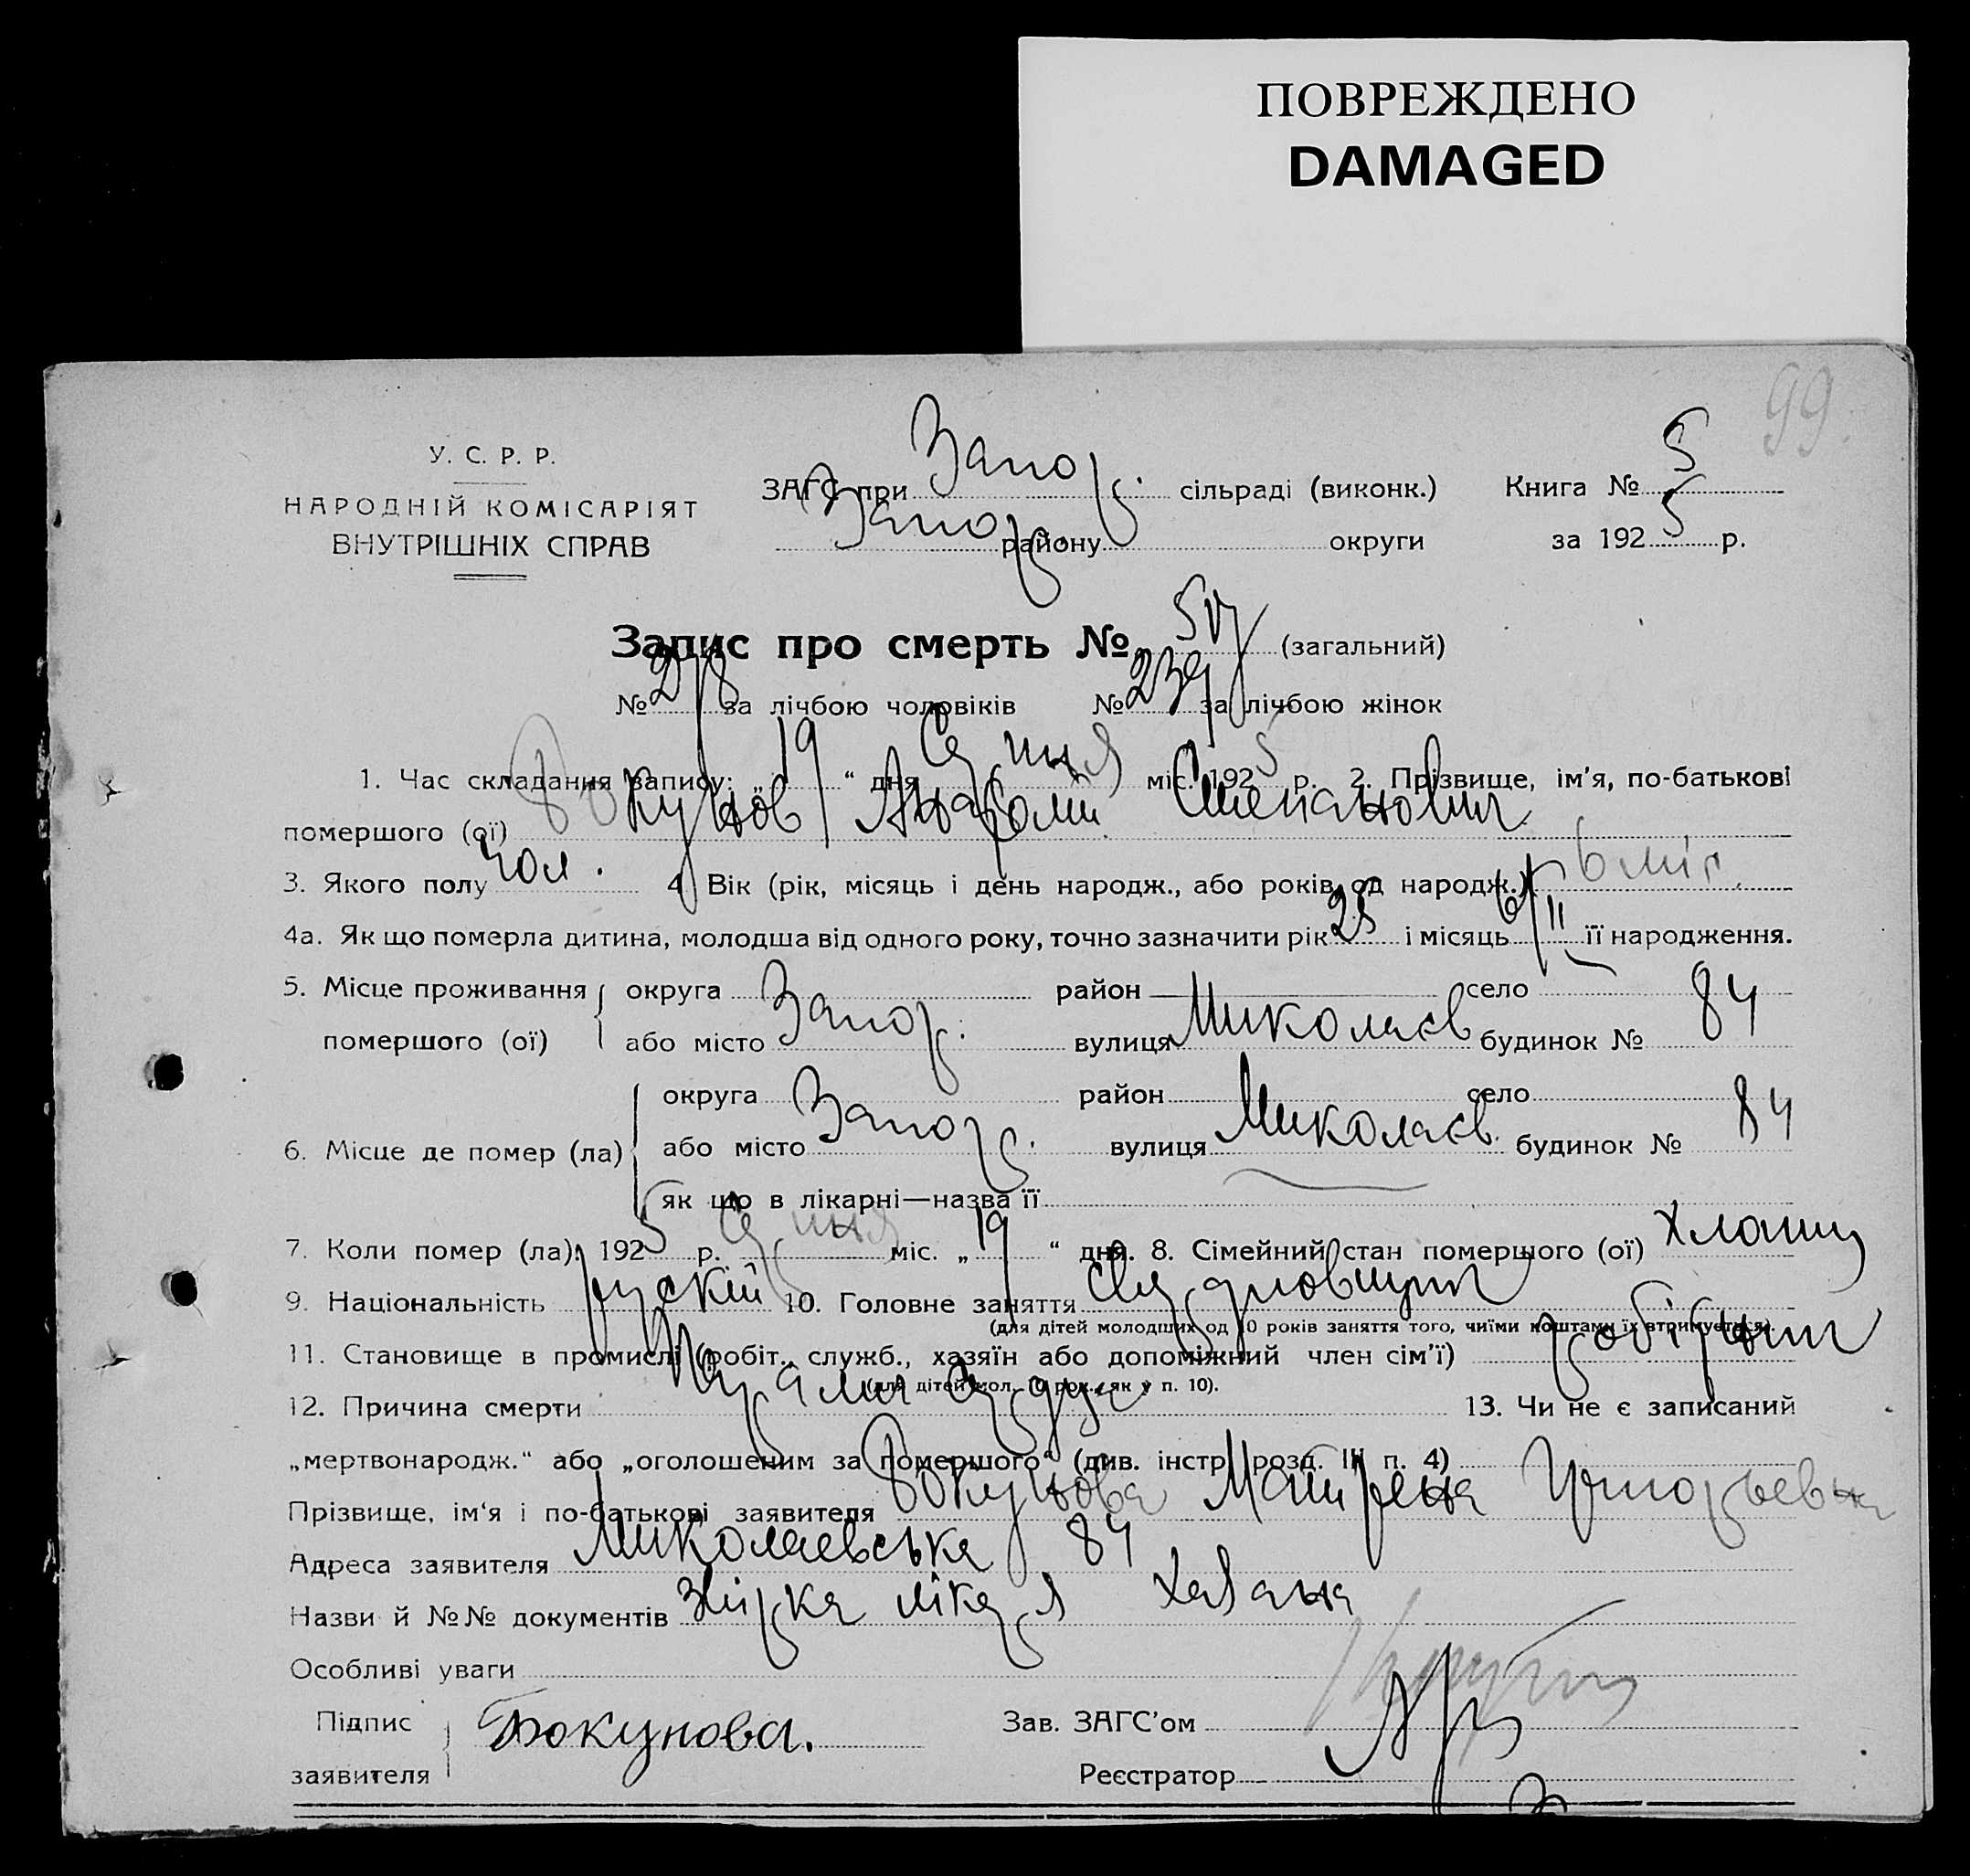 ПОВРЕЖДЕНО
DAMAGED
99.
У. С. Р. Р.
НАРОДНІЙ КОМІСАРІЯТ
ВНУТРІШНІХ СПРАВ
ЗАГС при Запор. сільраді (виконк.)
Запор. району округи
Книга № 5
за 1925 р.
Запис про смерть № 517 (загальний)
№ 278 за лічбою чоловіків № 239 за лічбою жінок
1. Час складання запису: „19“ дня Серпня міс. 1925 р. 2. Прізвище, ім'я, по-батькові
помершого (ої) Бокунов Степанович
3. Якого полу чол. 4. Вік (рік, місяць і день народж., або років од народж.) 6 міс.
4а. Як що померла дитина, молодша від одного року, точно зазначити рік 25 і місяць 6/II її народження.
5. Місце проживання помершого (ої) округа район село
або місто Запор. вулиця Миколаєв будинок № 84
6. Місце де помер (ла) округа район село
або місто Запор. вулиця Миколаєв. будинок № 84
як що в лікарні—назва її
7. Коли помер (ла): 1925 р. Серпня міс. „19“ дня. 8. Сімейний стан помершого (ої) хлопец
9. Національність руский 10. Головне заняття
(для дітей молодших од 10 років заняття того, чиїми коштами їх втримується).
11. Становище в промислі (робіт., служб., хазяїн або допоміжний член сім'ї) робітник
(для дітей мол. 10 рок., як у п. 10).
12. Причина смерти Параліч сердця 13. Чи не є записаний
„мертвонародж.“ або „оголошеним за помершого“ (див. інстр. розд. III п. 4)
Прізвище, ім'я і по-батькові заявителя Бокунова Матрена Григорьевна
Адреса заявителя Миколаевська 84
Назви й №№ документів лікаря
Особливі уваги
Підпис заявителя Бокунова.
Зав. ЗАГС'ом
Реєстратор